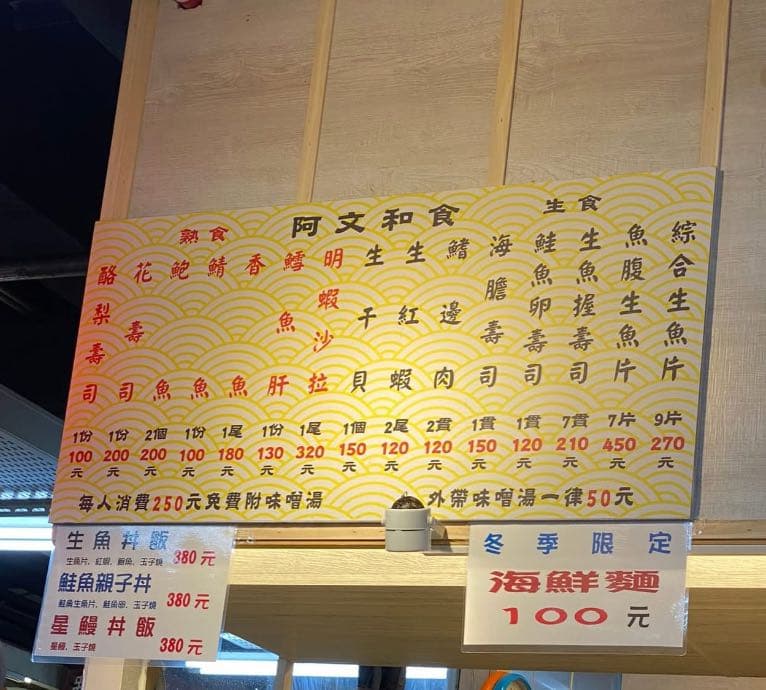 阿文和食
生食
綜合生魚片 9片 270元
魚腹生魚片 7片 450元
生魚握壽司 7貫 210元
鮭魚卵壽司 1貫 120元
海膽壽司 1貫 150元
鰭邊肉 2貫 120元
生紅蝦 2尾 120元
生干貝 1個 150元
熟食
明蝦沙拉 1尾 320元
鱈魚肝 1份 130元
香魚 1尾 180元
鯖魚 1份 100元
鮑魚 2個 200元
花壽司 1份 200元
酪梨壽司 1份 100元
每人消費250元免費附味噌湯
外帶味噌湯一律50元
生魚丼飯 380元
生魚片、紅蝦、鮑魚、玉子燒
鮭魚親子丼 380元
鮭魚生魚片、鮭魚卵、玉子燒
星鰻丼飯 380元
星鰻、玉子燒
冬季限定
海鮮麵
100元